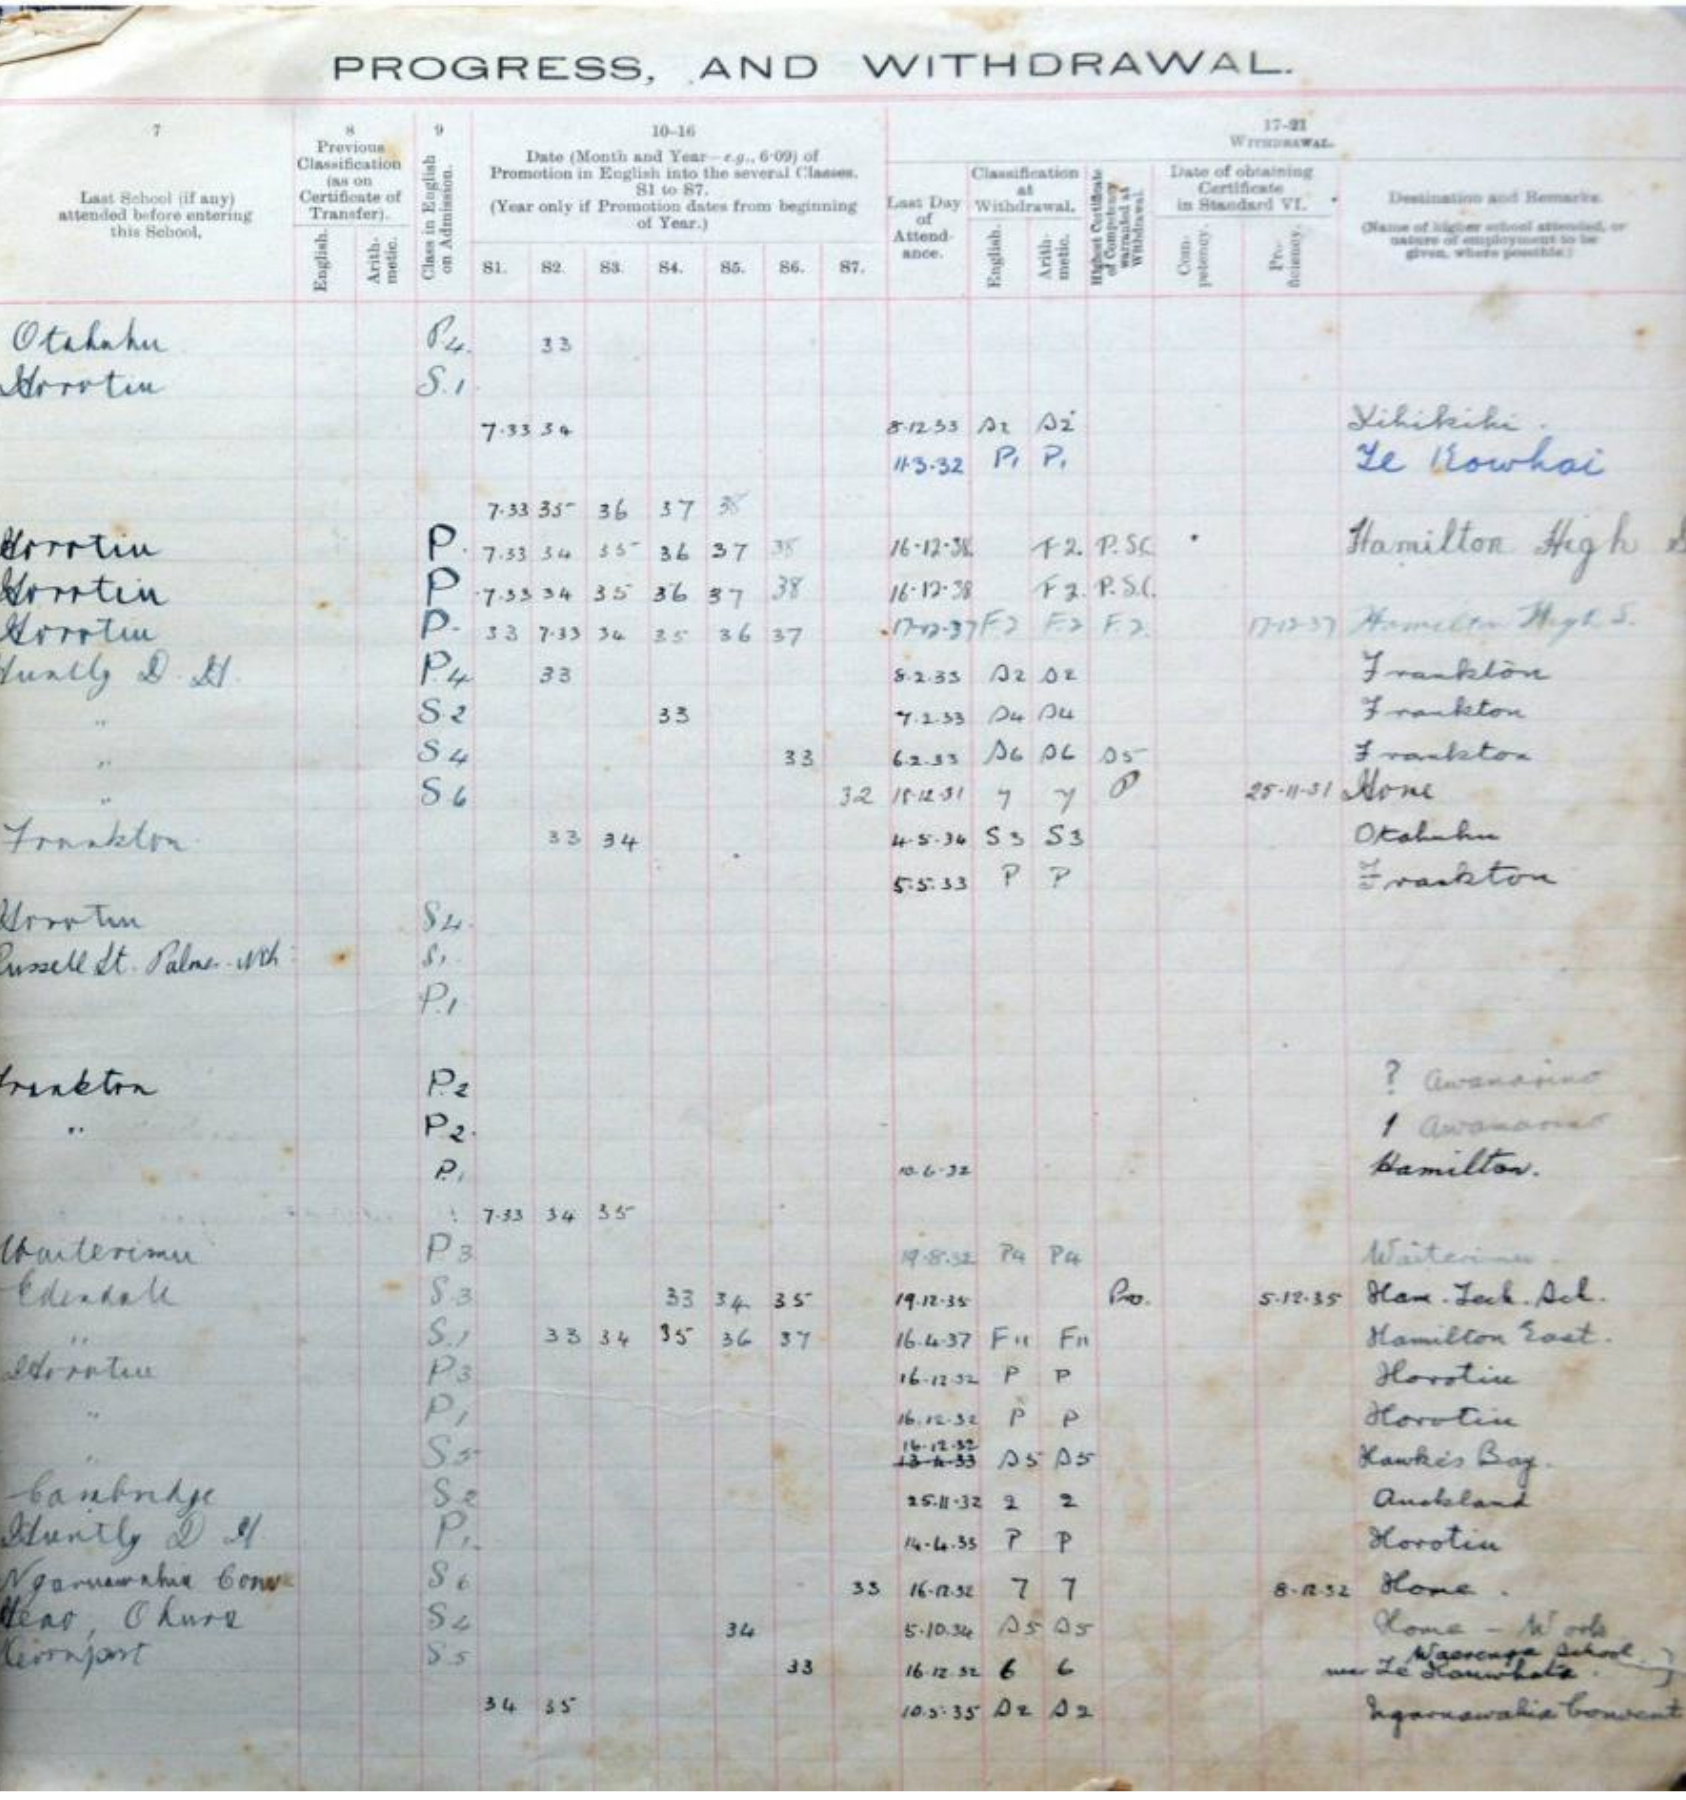 PROGRESS, AND WITHDRAWAL.
7
Last School (if any) attended before entering this School.
8
Previous Classification (as on Certificate of Transfer).
English. Arithmetic.
9
Class in English on Admission.
10-16
Date (Month and Year—e.g., 6·09) of Promotion in English into the several Classes, S1 to S7.
(Year only if Promotion dates from beginning of Year.)
S1. S2. S3. S4. S5. S6. S7.
17-21
WITHDRAWAL.
Last Day of Attendance.
Classification at Withdrawal.
English. Arithmetic.
Highest Certificate of Competency warranted at Withdrawal.
Date of obtaining Certificate in Standard VI.
Competency. Proficiency.
Destination and Remarks.
(Name of higher school attended, or nature of employment to be given, where possible.)
Otahuhu P4. 33
Horotiu S.1
7·33 34 8·12 33 S2 S2
11·3·32 P1 P1 Te Kowhai
7·33 35 36 37 38
Horotiu P. 7·33 34 35 36 37 38 16-12-38 F2. P.SC Hamilton High
Horotiu P 7·33 34 35 36 37 38 16-12-38 F2. P.S.C.
Horotiu P. 33 7·33 34 35 36 37 17-12-37 F.2 F.2 F.2. 17-12-37 Hamilton High S.
Huntly D. H. P.4 33 8.2.33 S2 S2 Frankton
" S.2 33 7.2.33 S4 S4 Frankton
" S4 33 6.2.33 S6 S6 S5 Frankton
" S6 32 18.12.31 7 7 P 25-11-31 Home
Frankton 33 34 4·5·34 S3 S3 Otahuhu
5.5.33 P P Frankton
Horotiu S4.
Russell St. Palm. Nth S1.
P.1
Frankton P.2 ? Awanarino
" P2. Awanarino
P.1 10.6-32 Hamilton.
7·33 34 35
Waiterimu P3 19·8·32 P4 P4 Waiterimu
Edendale S.3 33 34 35 19.12.35 Pro. 5·12·35 Ham. Tech. Sch.
" S.1 33 34 35 36 37 16.4.37 F11 F11 Hamilton East.
Horotiu P3 16-12-32 P P Horotiu
" P1 16.12.32 P P Horotiu
" S5 16-12-32 S5 S5 Hawke's Bay.
Cambridge S2 25.11.32 2 2 Auckland
Huntly D H P1. 14-4.33 P P Horotiu
Ngaruawahia Conv S6 33 16-12.32 7 7 8-12.32 Home.
Ohura S4 34 5·10.34 S5 S5 Home – Work
S5 33 16.12.32 6 6 Waerenga School near Te Kauwhata.
34 35 10.5.35 S2 S2 Ngaruawahia Convent